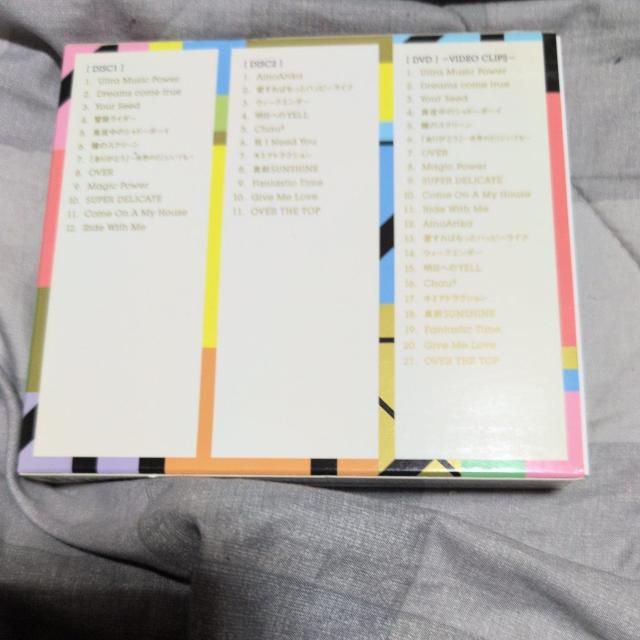 [ DISC1 ]
1. Ultra Music Power
2. Dreams come true
3. Your Seed
4. 冒険ライダー
5. 真夜中のシャドーボーイ
6. 瞳のスクリーン
7. 「ありがとう」〜世界のどこにいても〜
8. OVER
9. Magic Power
10. SUPER DELICATE
11. Come On A My House
12. Ride With Me
[ DISC2 ]
1. AinoArika
2. 愛すればもっとハッピーライフ
3. ウィークエンダー
4. 明日へのYELL
5. Chau#
6. 我 I Need You
7. キミアトラクション
8. 真剣SUNSHINE
9. Fantastic Time
10. Give Me Love
11. OVER THE TOP
[ DVD ] ~VIDEO CLIPS~
1. Ultra Music Power
2. Dreams come true
3. Your Seed
4. 真夜中のシャドーボーイ
5. 瞳のスクリーン
6. 「ありがとう」〜世界のどこにいても〜
7. OVER
8. Magic Power
9. SUPER DELICATE
10. Come On A My House
11. Ride With Me
12. AinoArika
13. 愛すればもっとハッピーライフ
14. ウィークエンダー
15. 明日へのYELL
16. Chau#
17. キミアトラクション
18. 真剣SUNSHINE
19. Fantastic Time
20. Give Me Love
21. OVER THE TOP